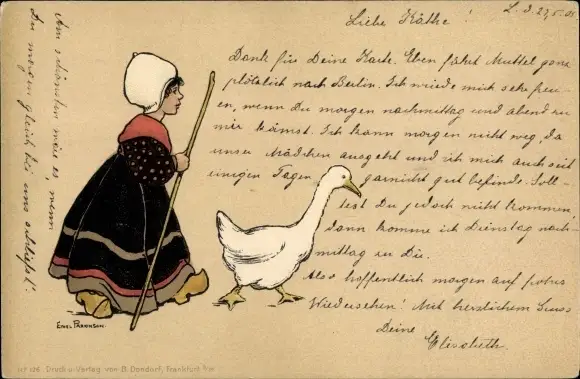 L. d. 27.5.05
Liebe Käthe!
Dank für Deine Karte. Eben fährt Muttel ganz
plötzlich nach Berlin. Ich würde mich sehr freu-
en, wenn Du morgen nachmittag und abend zu
mir kämst. Ich kann morgen nicht weg, da
unser Mädchen ausgeht und ich mich auch seit
einigen Tagen garnicht gut befinde. Soll-
test Du jedoch nicht kommen,
dann komme ich Dienstag nach-
mittag zu Dir.
Also hoffentlich morgen auf frohes
Wiedersehen! Mit herzlichem Gruss
Deine
Elisabeth.
Am schönsten wäre es, wenn
Du morgen gleich bei uns schliefst!
Ethel Parkinson
No 126 Druck u. Verlag von B. Dondorf, Frankfurt a/M